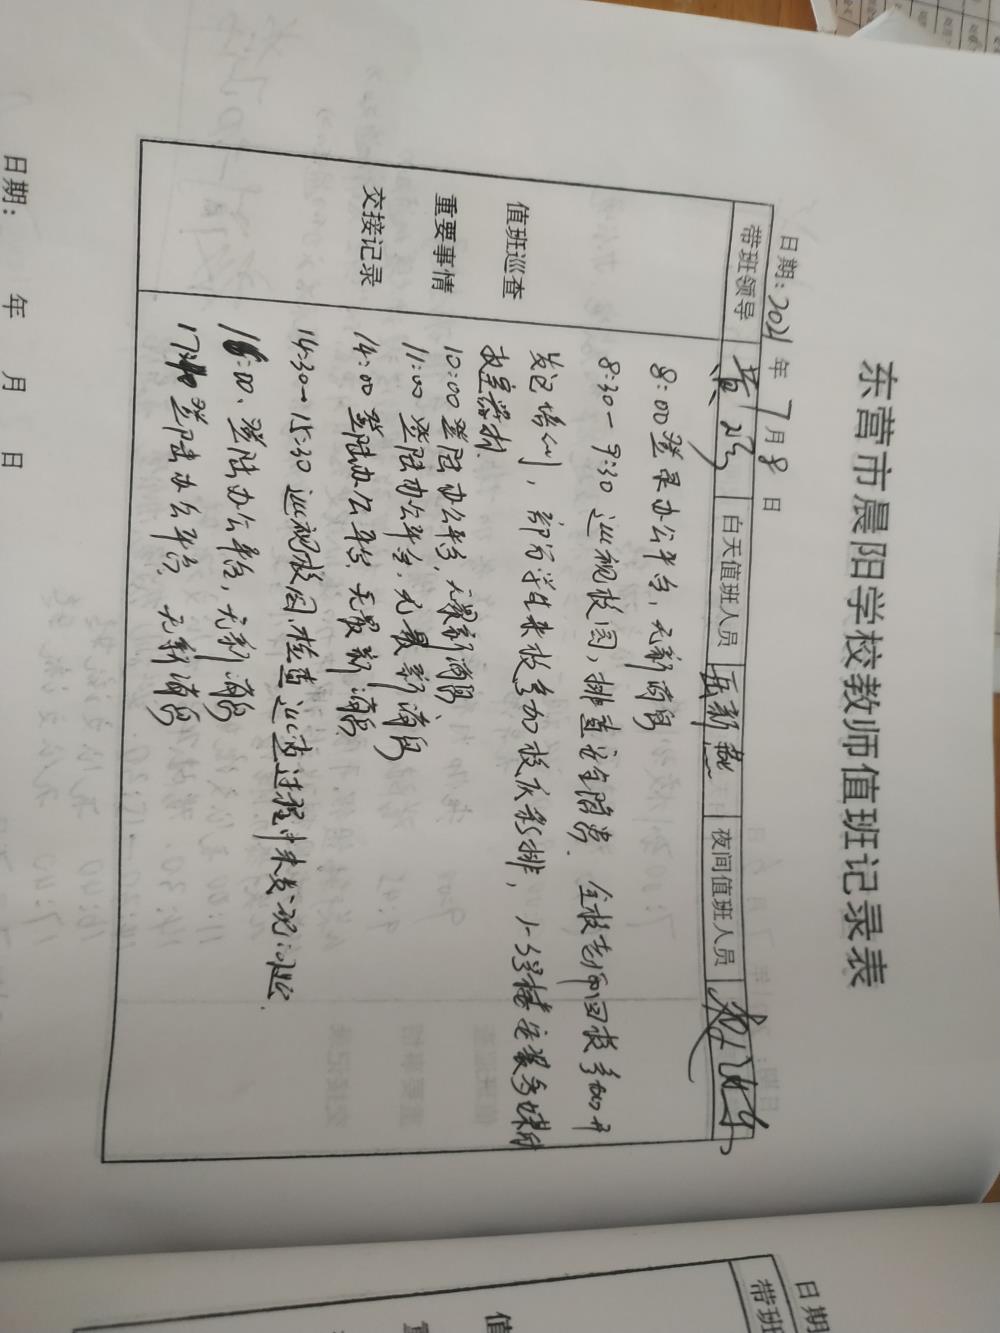 东营市晨阳学校教师值班记录表
日期: 2021 年 7 月 8 日
带班领导 黄 白天值班人员 岳新 夜间值班人员
值班巡查
重要事情
交接记录
8:00登录办公平台,无新消息
8:30-9:30 巡视校园,排查安全隐患. 全校老师回校参加开
发区培训, 部分学生来校参加校庆彩排, 1-3号楼安装多媒体
教室器材.
10:00登陆办公平台,无最新消息
11:00 登陆办公平台,无最新消息
14:00登陆办公平台,无最新消息
14:30-15:30 巡视校园,检查巡查过程中未发现问题.
16:00、登陆办公平台,无新消息
登陆办公平台, 无新消息
日期: 年 月 日
日期
带班
值